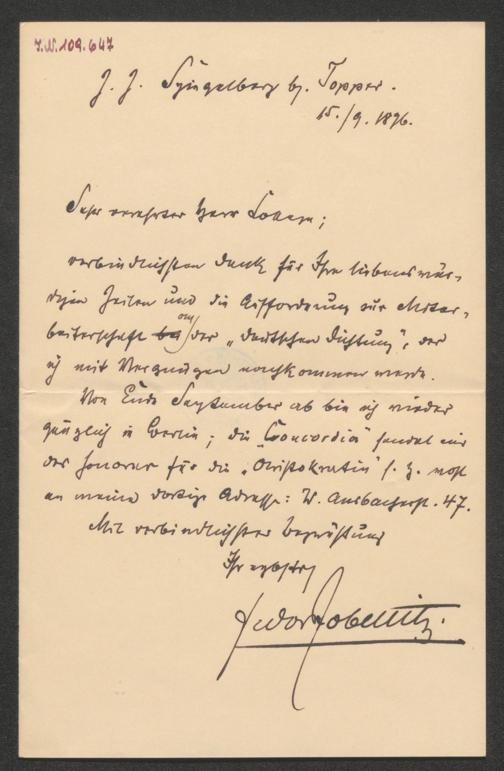 J.N. 109.647
z. Z. Spiegelberg by. Topper.
15./9. 1896.
Sehr verehrter Herr
verbindlichsten Dank für Ihre liebenswür-
digen Zeilen und die Aufforderung zur Mitar-
beiterschaft an der „Deutschen Dichtung“, der
ich mit Vergnügen nachkommen werde.
Von Ende September ab bin ich wieder
gänzlich in Berlin; die „Concordia“ sendet mir
das Honorar für die „Aristokratin“ s. Z. wohl
an meine dortige Adresse: W. Ansbacherst. 47.
Mit verbindlichster Begrüßung
Ihr ergbstr
Fedor Zobeltitz.